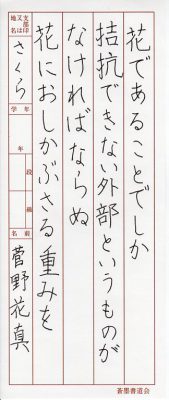 花であることでしか
拮抗できない外部というものが
なければならぬ
花におしかぶさる重みを
支部印又は地名
さくら
学年
年
段
級
名前
菅野花真
蒼墨書道会